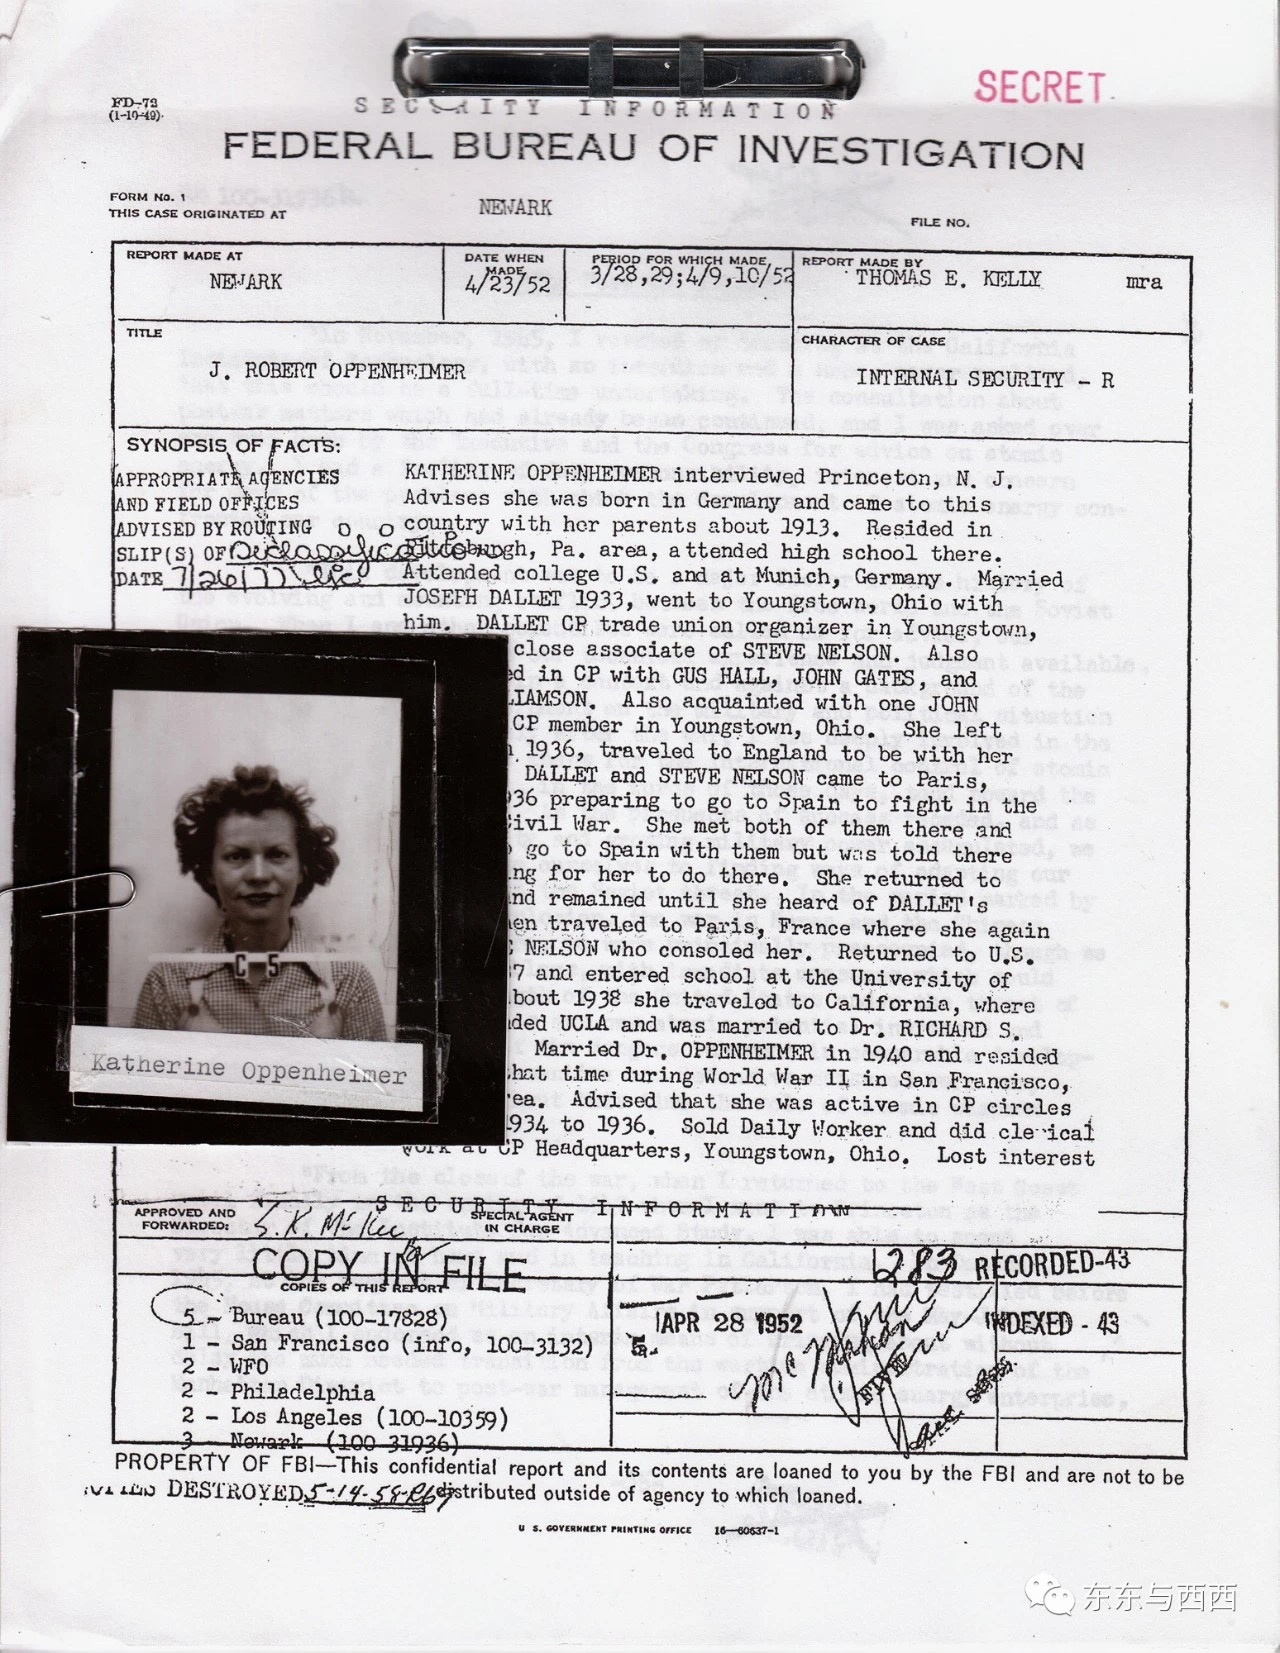 SECRET
FD-72
(1-10-49)
SECURITY INFORMATION
FEDERAL BUREAU OF INVESTIGATION
FORM No. 1
THIS CASE ORIGINATED AT NEWARK
FILE NO.
REPORT MADE AT
NEWARK
DATE WHEN MADE
4/23/52
PERIOD FOR WHICH MADE
3/28,29;4/9,10/52
REPORT MADE BY
THOMAS E. KELLY mra
TITLE
J. ROBERT OPPENHEIMER
CHARACTER OF CASE
INTERNAL SECURITY - R
SYNOPSIS OF FACTS:
APPROPRIATE AGENCIES
AND FIELD OFFICES
ADVISED BY ROUTING
SLIP(S) OF Declassification
DATE 7/26/77
KATHERINE OPPENHEIMER interviewed Princeton, N. J.
Advises she was born in Germany and came to this
country with her parents about 1913. Resided in
Pittsburgh, Pa. area, attended high school there.
Attended college U.S. and at Munich, Germany. Married
JOSEPH DALLET 1933, went to Youngstown, Ohio with
him. DALLET CP trade union organizer in Youngstown,
close associate of STEVE NELSON. Also
ed in CP with GUS HALL, JOHN GATES, and
LIAMSON. Also acquainted with one JOHN
CP member in Youngstown, Ohio. She left
1936, traveled to England to be with her
DALLET and STEVE NELSON came to Paris,
36 preparing to go to Spain to fight in the
Civil War. She met both of them there and
go to Spain with them but was told there
ng for her to do there. She returned to
nd remained until she heard of DALLET's
en traveled to Paris, France where she again
NELSON who consoled her. Returned to U.S.
7 and entered school at the University of
bout 1938 she traveled to California, where
ded UCLA and was married to Dr. RICHARD S.
Married Dr. OPPENHEIMER in 1940 and resided
hat time during World War II in San Francisco,
rea. Advised that she was active in CP circles
1934 to 1936. Sold Daily Worker and did clerical
work at CP Headquarters, Youngstown, Ohio. Lost interest
C 5
Katherine Oppenheimer
SECURITY INFORMATION
APPROVED AND
FORWARDED: S. K. McKee
SPECIAL AGENT
IN CHARGE
COPY IN FILE
COPIES OF THIS REPORT
5 - Bureau (100-17828)
1 - San Francisco (info, 100-3132)
2 - WFO
2 - Philadelphia
2 - Los Angeles (100-10359)
3 - Newark (100-31936)
283 RECORDED-43
APR 28 1952
INDEXED - 43
PROPERTY OF FBI—This confidential report and its contents are loaned to you by the FBI and are not to be
distributed outside of agency to which loaned.
DESTROYED 5-14-58
U. S. GOVERNMENT PRINTING OFFICE 16—60637-1
东东与西西